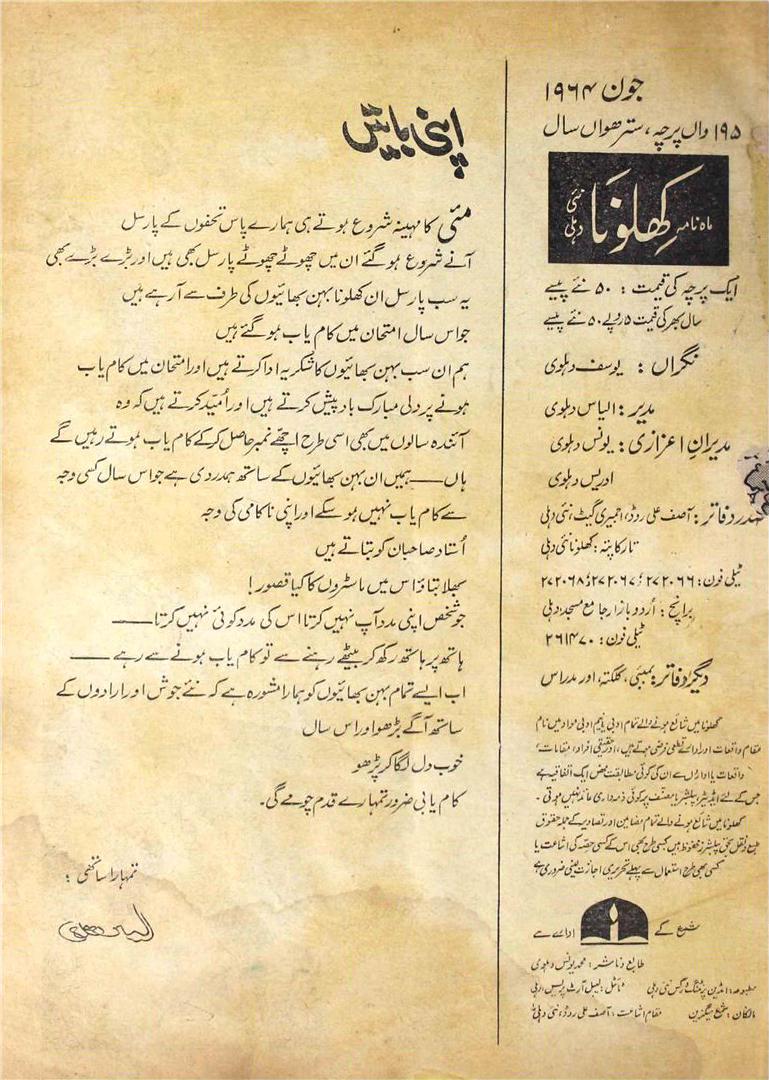 جون ۱۹۶۴
۱۹۵ واں پرچہ، سترھواں سال
ماہ نامہ کھلونا نئی دہلی
ایک پرچہ کی قیمت : ۵۰ نئے پیسے
سال بھر کی قیمت ۵ روپے ۵۰ نئے پیسے
نگراں : یوسف دہلوی
مدیر : الیاس دہلوی
مدیرانِ اعزازی : یونس دہلوی
ادریس دہلوی
صدر دفاتر : آصف علی روڈ، اجمیری گیٹ، نئی دہلی
تار کا پتہ : کھلونا نئی دہلی
ٹیلی فون : ۲۷۲۰۶۶ ؛ ۲۷۲۰۶۷ ؛ ۲۷۲۰۶۸
برانچ : اُردو بازار جامع مسجد دہلی
ٹیلی فون : ۲۶۱۴۷۰
دیگر دفاتر : بمبئی، کلکتہ، اور مدراس
کھلونا میں شائع ہونے والے تمام ادبی نیم ادبی مواد میں نام
مقام واقعات اور ادارے قطعی فرضی ہوتے ہیں، اور حقیقی افراد، مقامات،
واقعات یا اداروں سے ان کی کوئی مطابقت محض ایک اتفاقیہ ہے
جس کے لئے ایڈیٹر، پبلشر یا مصنف پر کوئی ذمہ داری عائد نہیں ہوتی۔
کھلونا میں شائع ہونے والے تمام مضامین اور تصاویر کے جملہ حقوق
طبع و نقل بحق پبلشرز محفوظ ہیں کسی طرح بھی اس کے کسی حصّہ کی اشاعت یا
کسی بھی طرح استعمال سے پہلے تحریری اجازت لینی ضروری ہے
شمع کے ادارے سے
طابع و ناشر : محمد یونس دہلوی
مطبوعہ : انڈین پرنٹنگ ورکس نئی دہلی ٹائٹل : لیبل آرٹ پریس، دہلی
مالکان : شمع میگزین مقام اشاعت : آصف علی روڈ، نئی دہلی
اپنی باتیں
مئی کا مہینہ شروع ہوتے ہی ہمارے پاس تحفوں کے پارسل
آنے شروع ہو گئے ان میں چھوٹے چھوٹے پارسل بھی ہیں اور بڑے بڑے بھی
یہ سب پارسل ان کھلونا بہن بھائیوں کی طرف سے آ رہے ہیں
جو اس سال امتحان میں کام یاب ہو گئے ہیں
ہم ان سب بہن بھائیوں کا شکریہ ادا کرتے ہیں اور امتحان میں کام یاب
ہونے پر دلی مبارک باد پیش کرتے ہیں اور اُمید کرتے ہیں کہ وہ
آئندہ سالوں میں بھی اسی طرح اچھّے نمبر حاصل کر کے کام یاب ہوتے رہیں گے
ہاں —— ہمیں ان بہن بھائیوں کے ساتھ ہمدردی ہے جو اس سال کسی وجہ
سے کام یاب نہیں ہو سکے اور اپنی ناکامی کی وجہ
اُستاد صاحبان کو بتاتے ہیں
بھلا بتاؤ اس میں ماسٹروں کا کیا قصور !
جو شخص اپنی مدد آپ نہیں کرتا اس کی مدد کوئی نہیں کرتا ——
ہاتھ پر ہاتھ رکھ کر بیٹھے رہنے سے تو کام یاب ہونے سے رہے ——
اب ایسے تمام بہن بھائیوں کو ہمارا مشورہ ہے کہ نئے جوش اور ارادوں کے
ساتھ آگے بڑھو اور اس سال
خوب دل لگا کر پڑھو
کام یابی ضرور تمہارے قدم چومے گی۔
تمہارا ساتھی :
الیاس دہلوی